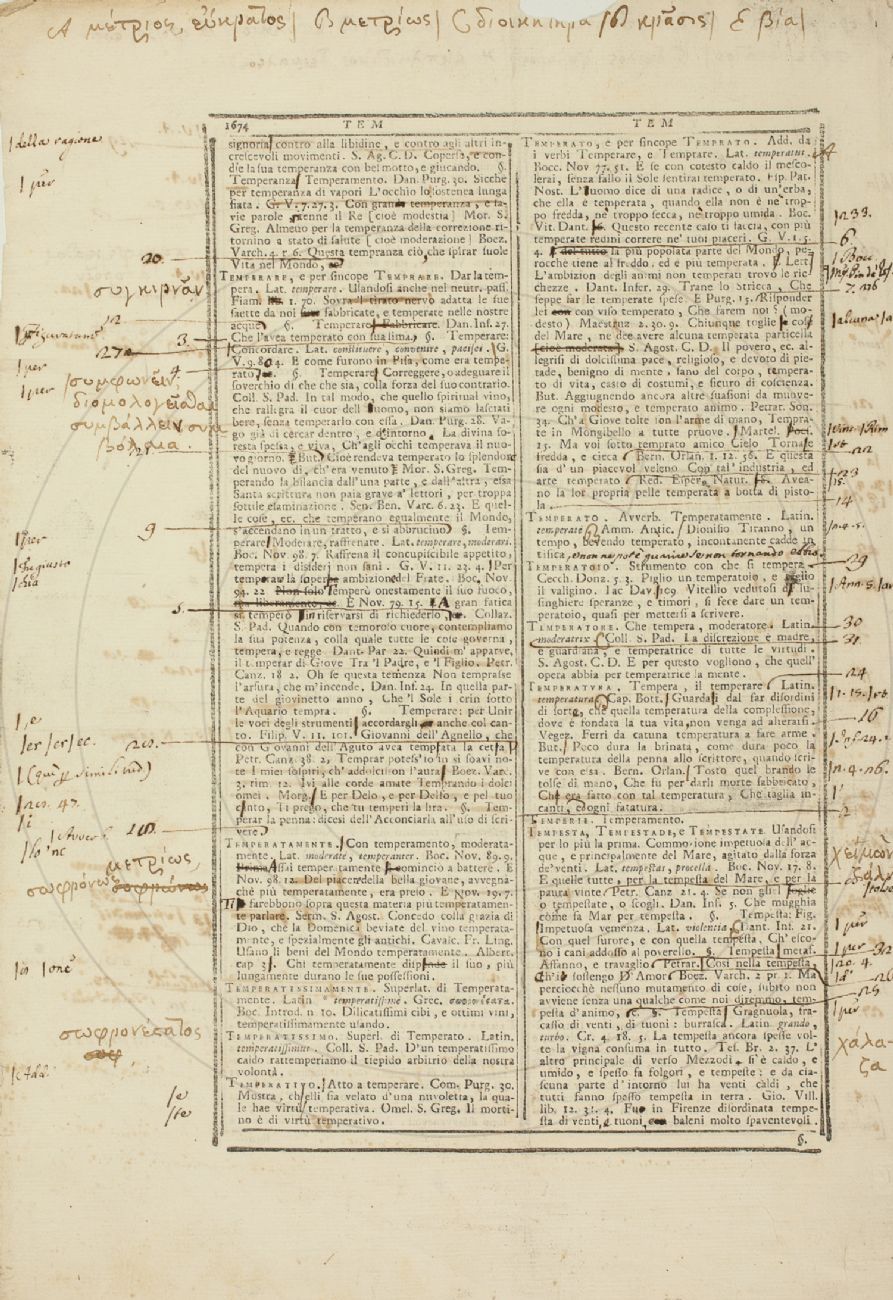 A μέτριος, εὔκρατος| B μετρίως| C διοίκητηρα / D κρᾶσις| E βία|
1674 TEM TEM
signoria contro alla libidine, e contro agli altri in-
crescevoli movimenti. S. Ag. C. D. Coperse, e con-
die la sua temperanza con bel motto, e giucando. §.
Temperanza Temperamento. Dan. Purg. 30. Sicchè
per temperanza di vapori L'occhio lo sostenea lunga
fiata. G. V. 7. 27. 3. Con grande temperanza, e sa-
vie parole tenne il Re [cioè modestia] Mor. S.
Greg. Almeno per la temperanza della correzione ri-
tornino a stato di salute [cioè moderazione] Boez.
Varch. 4. r 6. Questa tempranza ciò, che spirar suole
Vita nel Mondo,
TEMPERARE, e per sincope TEMPRARE. Dar la tem-
pera. Lat. temperare. Usandosi anche nel neutr. pass.
Fiam. 1. 70. Sovra il tirato nervo adatta le sue
saette da noi fabbricate, e temperate nelle nostre
acque §. Temperare Fabbricare. Dan. Inf. 27.
Che l'avea temperato con sua lima. §. Temperare:
Concordare. Lat. constituere, convenire, pacisci. G.
V. 9. 80 4. E come furono in Pisa, come era tempe-
rato §. Temperare Correggere, o adeguare il
soverchio di che che sia, colla forza del suo contrario.
Coll. S. Pad. In tal modo, che quello spiritual vino,
che rallegra il cuor dell'uomo, non siamo lasciati
bere, senza temperarlo con essa. Dan. Purg. 28. Va-
go già di cercar dentro, e d'intorno La divina fo-
resta spessa, e viva, Ch'agli occhi temperava il nuo-
vo giorno. But. Cioè rendeva temperato lo splendor
del nuovo dì, ch'era venuto Mor. S. Greg. Tem-
perando la bilancia dall'una parte, e dall'altra, essa
Santa scrittura non paia grave a' lettori, per troppa
sottile esaminazione. Sen. Ben. Varc. 6. 23. E quel-
le cose, ec. che temperano egualmente il Mondo,
s'accendano in un tratto, e si abbrucino §. Tem-
perare Moderare, raffrenare. Lat. temperare, moderari.
Boc. Nov. 98. 7. Raffrena il concupiscibile appetito,
tempera i disiderj non sani. G. V. 11. 23. 4. Per
temperare la superbe ambizione del Frate. Boc. Nov.
94. 22 Non solo temperò onestamente il suo fuoco,
E Nov. 79. 15. A gran fatica
si temperò in riservarsi di richiederlo Collaz.
S. Pad. Quando con temoroso cuore, contempliamo
la sua potenza, colla quale tutte le cose governa,
tempera, e regge Dant. Par 22. Quindi m'apparve,
il temperar di Giove Tra 'l Padre, e 'l Figlio. Petr.
Canz. 18 2. Oh se questa temenza Non temprasse
l'arsura, che m'incende. Dan. Inf. 24. In quella par-
te del giovinetto anno, Che 'l Sole i crin sotto
l'Aquario tempra. §. Temperare: per Unir
le voci degli strumenti accordargli anche col can-
to. Filip. V. 11. 101. Giovanni dell'Agnello, che
con Giovanni dell'Aguto avea temprata la cetra
Petr. Canz. 38. 2. Temprar potess'io in sì soavi no-
te I miei sospiri, ch'addolcisson l'aura Boez. Varc.
3. rim. 12. Ivi alle corde amate Temprando i dolci
omei. Morg. E per Delo, e per Delfo, e pel tuo
canto, Ti prego, che tu temperi la lira. §. Tem-
perar la penna: dicesi dell'Acconciarla all'uso di scri-
vere
TEMPERATAMENTE. Con temperamento, moderata-
mente. Lat. moderatè, temperanter. Boc. Nov. 89. 9.
Assai temperatamente cominciò a battere. E
Nov. 98. 12. Del piacer della bella giovane, avvegna-
chè più temperatamente, era preso. E Nov. 19. 7.
sarebbono sopra questa materia più temperatamen-
te parlare. Serm. S. Agost. Concedo colla grazia di
Dio, che la Domenica beviate del vino temperata-
mente, e spezialmente gli antichi. Cavalc. Fr. Ling.
Usano li beni del Mondo temperatamente. Alberc.
cap 3. Chi temperatamente dispende il suo, più
lungamente durano le sue possessioni.
TEMPERATISSIMAMENTE. Superlat. di Temperata-
mente. Latin temperatissimè. Grec.
Boc. Introd. n 10. Dilicatissimi cibi, e ottimi vini,
temperatissimamente usando.
TEMPERATISSIMO. Superl. di Temperato. Latin.
temperatissimus. Coll. S. Pad. D'un temperatissimo
caldo rattemperiamo il tiepido arbitrio della nostra
volontà.
TEMPERATIVO. Atto a temperare. Com. Purg. 30.
Mostra, ch'elli sia velato d'una nuvoletta, la qua-
le hae virtù temperativa. Omel. S. Greg. Il morti-
no è di virtù temperativo.
TEMPERATO, e per sincope TEMPRATO. Add. da
i verbi Temperare, e Temprare. Lat. temperatus.
Bocc. Nov 77. 51. E se con cotesto caldo il mesco-
lerai, senza fallo il Sole sentirai temperato. Esp. Pat.
Nost. L'uomo dice di una radice, o di un'erba,
che ella è temperata, quando ella non è nè trop-
po fredda, nè troppo secca, nè troppo umida. Boc.
Vit. Dant. Questo recente caso ti faccia, con più
temperate redini correre ne' tuoi piaceri. G. V. 1. 5.
4. del tutto la più popolata parte del Mondo, pe-
rocchè tiene al freddo, ed è più temperata. Lett.
L'ambizion degli animi non temperati trovò le ric-
chezze. Dant. Infer. 29. Trane lo Stricca, Che
seppe far le temperate spese. E Purg. 15. Risponder
lei con viso temperato, Che farem noi (mo-
desto) Maestruz 2. 30. 9. Chiunque toglie cose
del Mare, ne dee avere alcuna temperata particella
(cioè moderata). S. Agost. C. D. Il povero, ec. al-
legrasi di dolcissima pace, religioso, e devoto di pie-
tade, benigno di mente, sano del corpo, tempera-
to di vita, casto di costumi, e sicuro di coscienza.
But. Aggiugnendo ancora altre suasioni da muove-
re ogni modesto, e temperato animo. Petrar. Son.
33. Ch'a Giove tolte son l'arme di mano, Tempra-
te in Mongibello a tutte pruove. Martel.
15. Ma voi sotto temprato amico Cielo Tornate
fredda, e cieca Bern. Orlan. 1. 12. 56. E questa
sia d'un piacevol veleno Con tal'industria, ed
arte temperato Red. Esper. Natur. Avea-
no la lor propria pelle temperata a botta di pisto-
la
TEMPERATO. Avverb. Temperatamente. Latin.
temperatè Amm. Antic. Dionisio Tiranno, un
tempo, bevendo temperato, incontanente cadde in
tisica,
TEMPERATOIO. Strumento con che si tempera
Cecch. Dona. 5. 3. Piglio un temperatoio, e piglio
il valigino. Tac Dav. 9 Vitellio vedutosi di lu-
singhiere speranze, e timori, si fece dare un tem-
peratoio, quasi per mettersi a scrivere.
TEMPERATORE. Che tempera, moderatore. Latin.
moderatrix Coll. S. Pad. La discrezione è madre,
e guardiana, e temperatrice di tutte le virtudi.
S. Agost. C. D E per questo vogliono, che quell'
opera abbia per temperatrice la mente.
TEMPERATURA. Tempera, il temperare Latin.
temperatura Cap. Bott. Guardasi dal far disordini
di sorte, che quella temperatura della complessione,
dove è fondata la tua vita, non venga ad alterarsi.
Vegez. Ferri da catuna temperatura a fare arme.
But. Poco dura la brinata, come dura poco la
temperatura della penna allo scrittore, quando scri-
ve con essa. Bern. Orlan. Tosto quel brando le
tolse di mano, Che fu per darli morte fabbricato,
Che era fatto con tal temperatura, Che taglia in-
canti, ed ogni fatatura.
TEMPERIE. Temperamento.
TEMPESTA, TEMPESTADE, e TEMPESTATE. Usandosi
per lo più la prima. Commozione impetuosa dell'ac-
que, e principalmente del Mare, agitato dalla forza
de' venti. Lat. tempestas, procella. Boc. Nov. 17. 8.
E quelle tutte per la tempesta del Mare, e per la
paura vinte Petr. Canz. 21. 4. Se non gli
o tempestate, o scogli. Dan. Inf. 5. Che mugghia
come fa Mar per tempesta. §. Tempesta: Fig.
Impetuosa veemenza. Lat. violentia, Dant. Inf. 21.
Con quel furore, e con quella tempesta, Ch'esco-
no i cani addosso al poverello. §. Tempesta metaf.
Affanno, e travaglio Petrar. Così nella tempesta,
Ch'io sostengo D'Amor Boez. Varch. 2 pr 1. Ma
perciocchè nessuno mutamento di cose, subito non
avviene senza una qualche come noi diremmo, tem-
pesta d'animo, §. Tempesta Gragnuola, fra-
casso di venti, di tuoni: burrasca. Latin grando,
turbo. Cr. 4. 18. 5. La tempesta ancora spesse vol-
te la vigna consuma in tutto. Tes. Br. 2. 37. L'
altro principale di verso Mezzodì sì è caldo, e
umido, e spesso fa folgori, e tempeste: e da cia-
scuna parte d'intorno lui ha venti caldi, che
tutti fanno spesso tempesta in terra. Gio. Vill.
lib. 12. 31. 4. Fue in Firenze disordinata tempe-
sta di venti, e tuoni baleni molto spaventevoli.
§.
della ragione
per
20.
συγκιρνᾶν
12
3.
27
per
4
per
συμφωνεῖν,
διομολογεῖσθαι
συμβάλλειν συμ-
βόλαια.
per
9
che giusto
5.
(qui simili ind)
μετρίως,
σωφρόνως
σωφρονέςατος
Add.
A
233.
6
Bocc
22
23
15.
14
29
30
31
24
16
2
χειμὼν
per
per 32
26
25
per
χάλα-
ζα